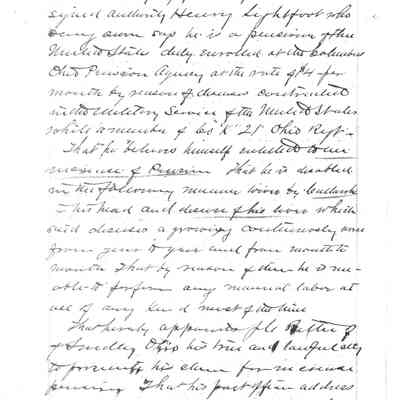 signed authority Henry Lightfoot who
being sworn says he is a pensioner of the
United States duly enrolled at the Columbus
Ohio Pension Agency at the rate of $4 per
month by reason of disease contracted
in the Military Service of the United States
while a member of Co "K" 21" Ohio Regt.
That he believes himself entitled to an
increase of Pension That he is disabled
in the following manner by
his head and disease of his which
said diseases a growing continuously worse
from year to year and from month to
month That by reason of he is un-
able to perform any manual labor at
all of any kind most of the time
That hereby appoints
of Smedley Ohio his true and lawful atty
to his claim for increase
pension That his post office address